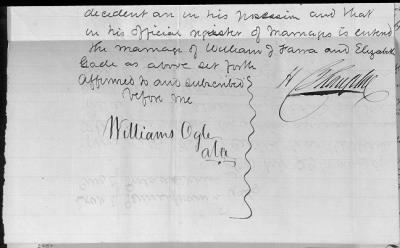 decedent are in his possession and that
in his official register of marriages is entered
the marriage of William J. Farra and Elizabeth
Eade as above set forth
Affirmed to and subscribed
before me
Williams Ogle